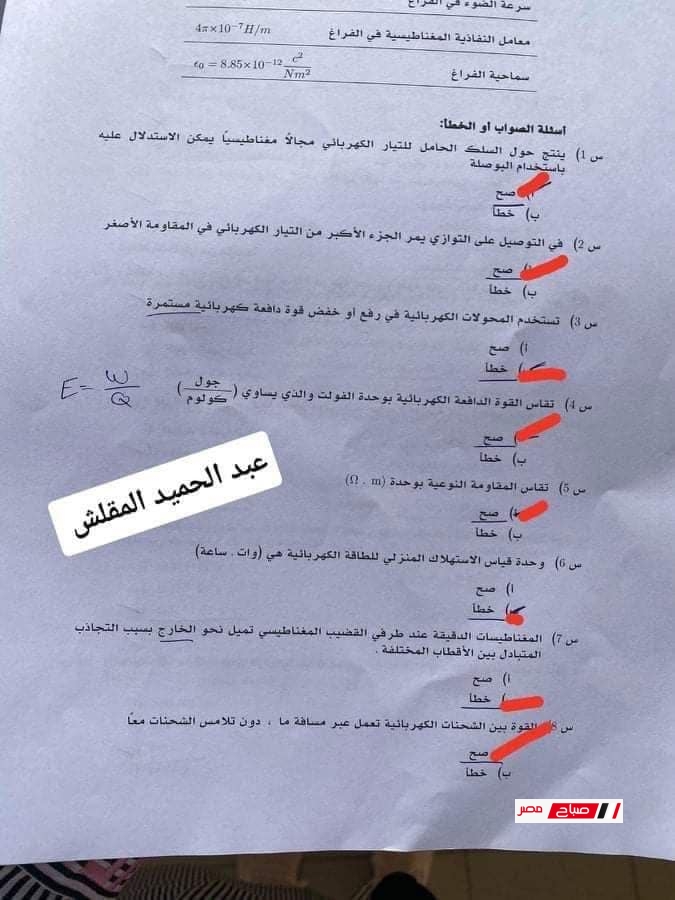 سرعة الضوء في الفراغ
معامل النفاذية المغناطيسية في الفراغ 4π×10⁻⁷H/m
سماحية الفراغ ϵ₀ = 8.85×10⁻¹² c²/Nm²
اسئلة الصواب أو الخطأ:
س 1) ينتج حول السلك الحامل للتيار الكهربائي مجالاً مغناطيسياً يمكن الاستدلال عليه
باستخدام البوصلة
أ) صح
ب) خطأ
س 2) في التوصيل على التوازي يمر الجزء الأكبر من التيار الكهربائي في المقاومة الأصغر
صح
ب) خطأ
س 3) تستخدم المحولات الكهربائية في رفع أو خفض قوة دافعة كهربائية مستمرة
أ) صح
خطأ
س 4) تقاس القوة الدافعة الكهربائية بوحدة الفولت والذي يساوي (جول/كولوم)
E = W/Q
صح
ب) خطأ
عبد الحميد المقلش
س 5) تقاس المقاومة النوعية بوحدة (Ω . m)
صح
ب) خطأ
س 6) وحدة قياس الاستهلاك المنزلي للطاقة الكهربائية هي (وات . ساعة)
أ) صح
خطأ
س 7) المغناطيسات الدقيقة عند طرفي القضيب المغناطيسي تميل نحو الخارج بسبب التجاذب
المتبادل بين الأقطاب المختلفة .
أ) صح
خطأ
س 8) القوة بين الشحنات الكهربائية تعمل عبر مسافة ما ، دون تلامس الشحنات معاً
صح
ب) خطأ
صباح مصر